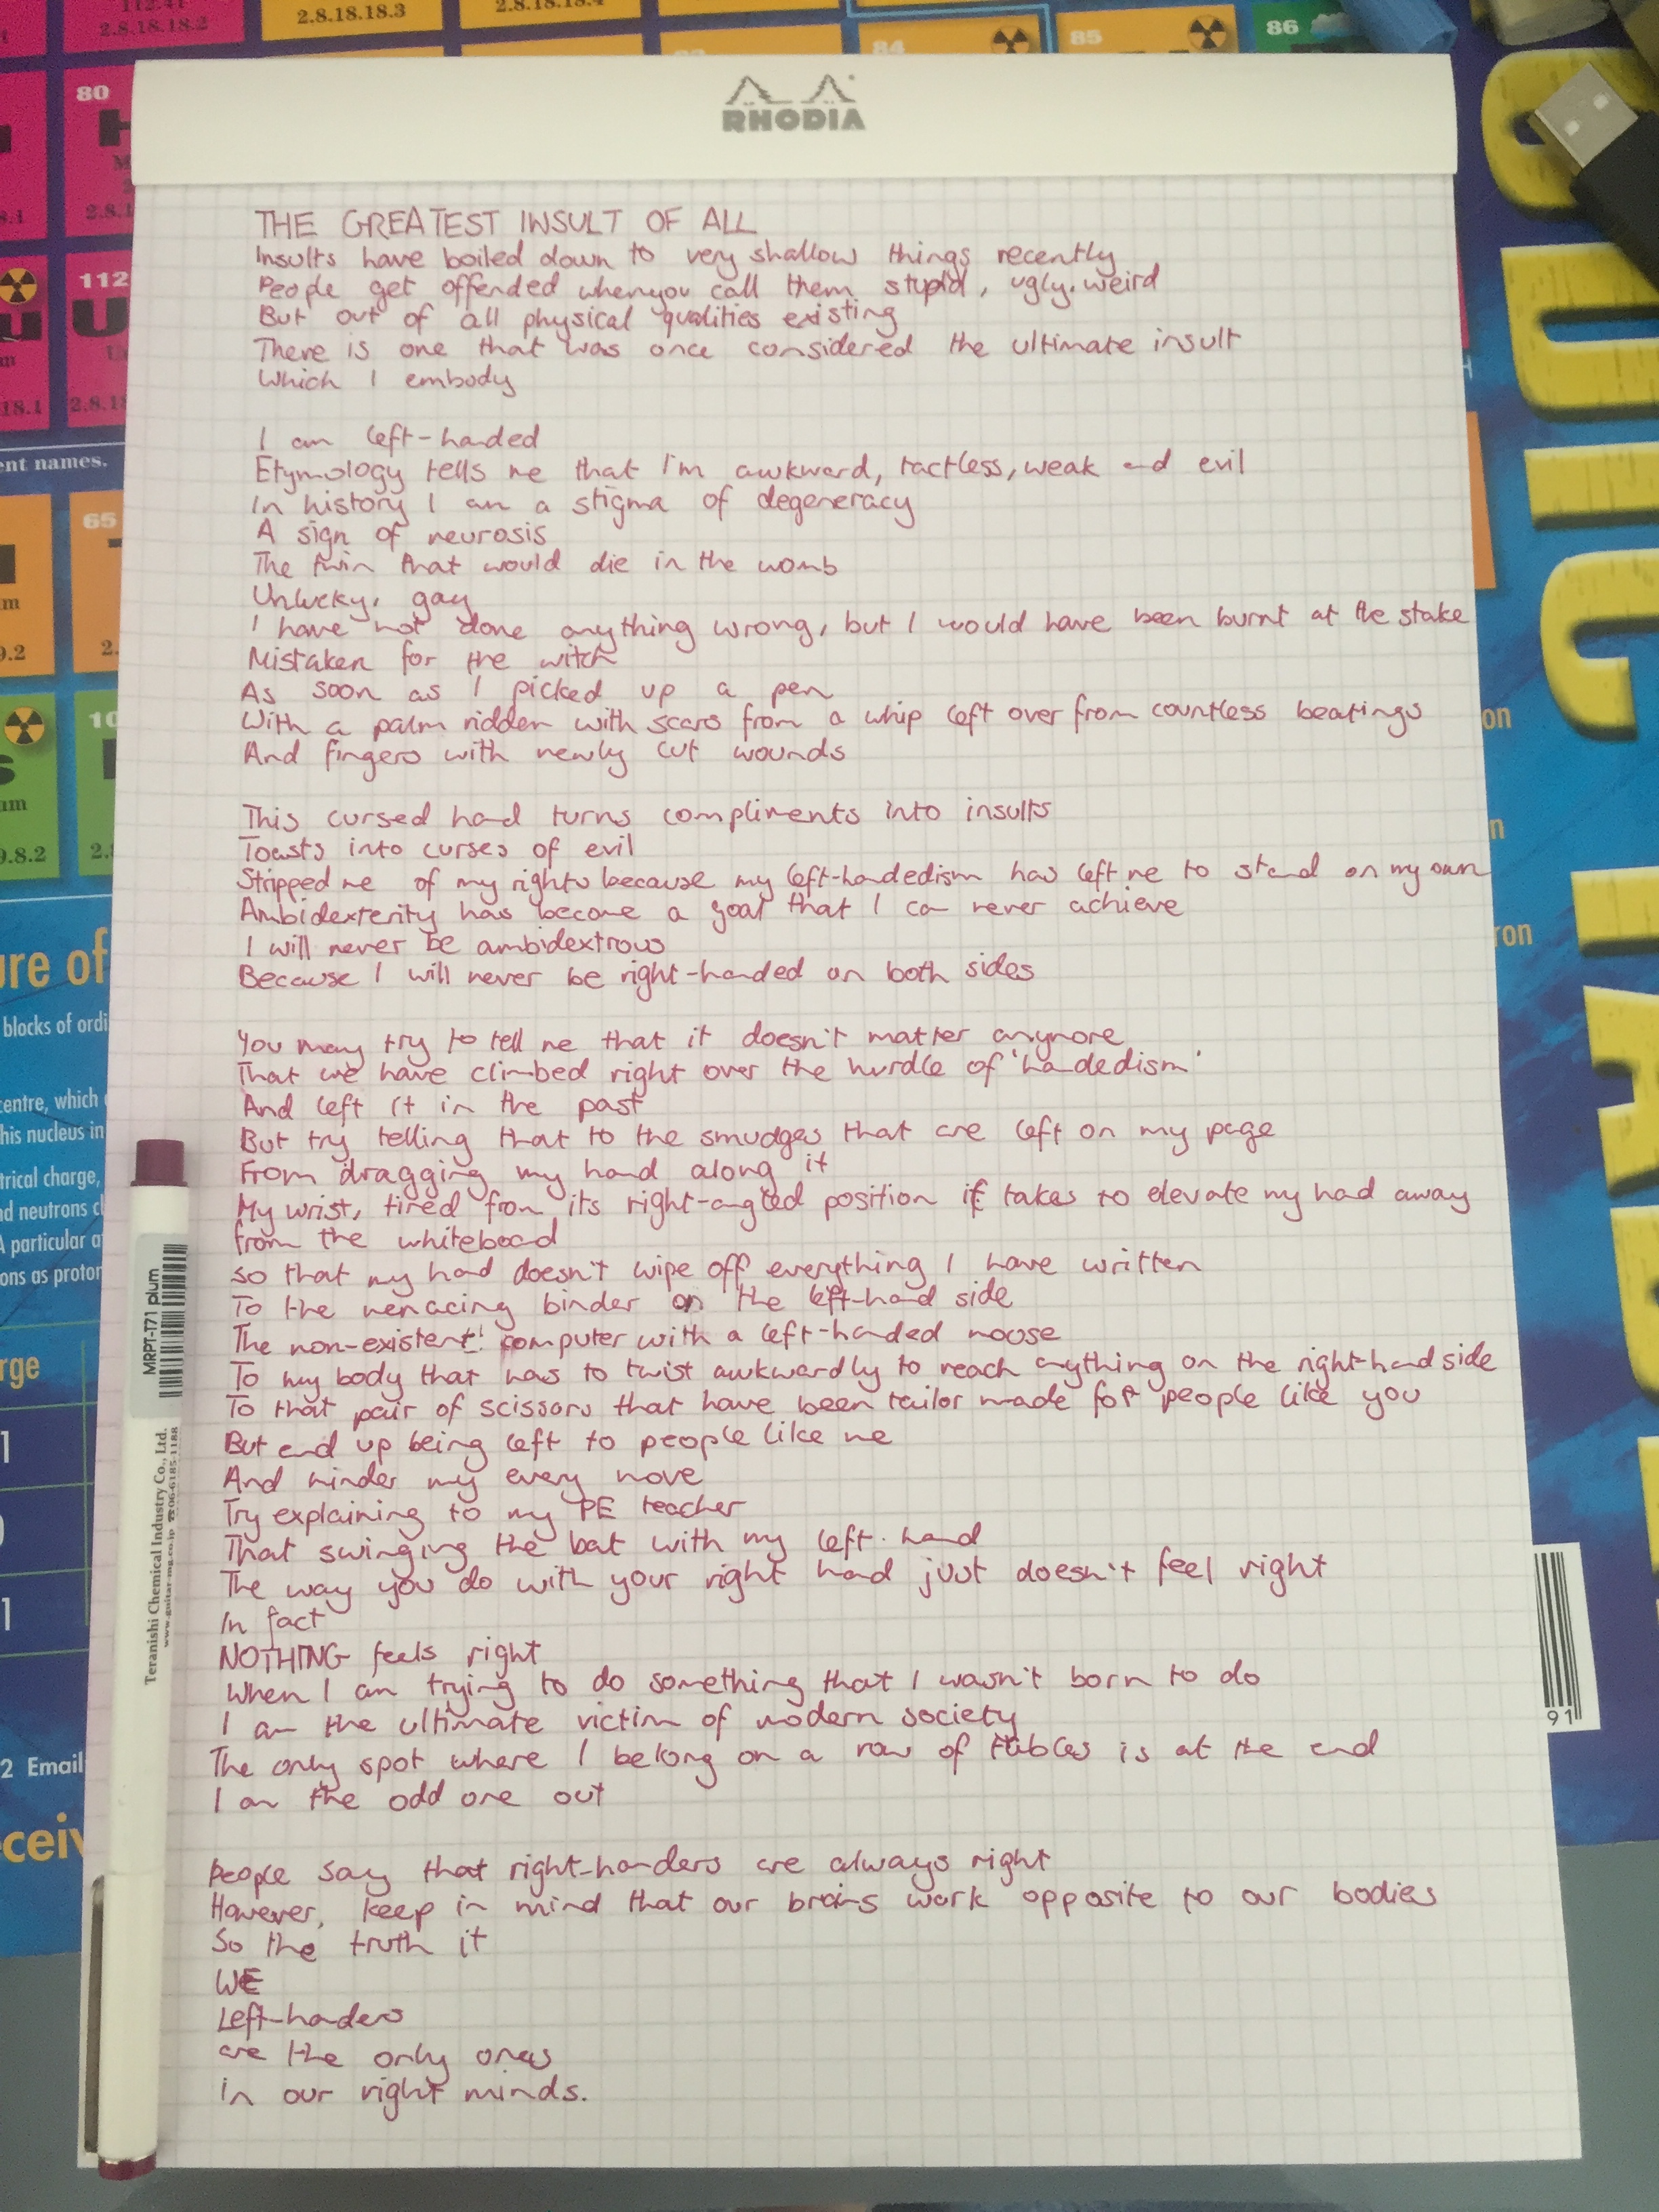 112.41
2.8.18.18.2
2.8.18.18.3
2.8.18.18.4
84
85
86
80
H
2.8.1
RHODIA
112
U
2.8.18.1
ent names.
65
9.2
2.
10
9.8.2
2.
THE GREATEST INSULT OF ALL
Insults have boiled down to very shallow things recently
People get offended when you call them stupid, ugly, weird
But out of all physical qualities existing
There is one that was once considered the ultimate insult
Which I embody
I am left-handed
Etymology tells me that I'm awkward, tactless, weak and evil
In history I am a stigma of degeneracy
A sign of neurosis
The twin that would die in the womb
Unlucky, gay
I have not done anything wrong, but I would have been burnt at the stake
Mistaken for the witch
As soon as I picked up a pen
With a palm ridden with scars from a whip left over from countless beatings
And fingers with newly cut wounds
This cursed hand turns compliments into insults
Toasts into curses of evil
Stripped me of my rights because my left-handedism has left me to stand on my own
Ambidexterity has become a goal that I can never achieve
I will never be ambidextrous
Because I will never be right-handed on both sides
You may try to tell me that it doesn't matter anymore
That we have climbed right over the hurdle of 'handedism'
And left it in the past
But try telling that to the smudges that are left on my page
From dragging my hand along it
My wrist, tired from its right-angled position it takes to elevate my hand away
from the whiteboard
so that my hand doesn't wipe off everything I have written
To the menacing binder on the left-hand side
The non-existent computer with a left-handed mouse
To my body that has to twist awkwardly to reach anything on the right-hand side
To that pair of scissors that have been tailor made for people like you
But end up being left to people like me
And hinder my every move
Try explaining to my PE teacher
That swinging the bat with my left hand
The way you do with your right hand just doesn't feel right
In fact
NOTHING feels right
When I am trying to do something that I wasn't born to do
I am the ultimate victim of modern society
The only spot where I belong on a row of tables is at the end
I am the odd one out
People say that right-handers are always right
However, keep in mind that our brains work opposite to our bodies
So the truth it
WE
Left-handers
are the only ones
in our right minds.
ure of
blocks of ordi
centre, which
his nucleus in
trical charge,
nd neutrons
A particular a
ons as proton
rge
1
1
2 Email
ceiv
MRPT-T71 plum
Teranishi Chemical Industry Co., Ltd.
www.guitar-mg.co.jp ☎06-6185-1188
on
n
ron
91